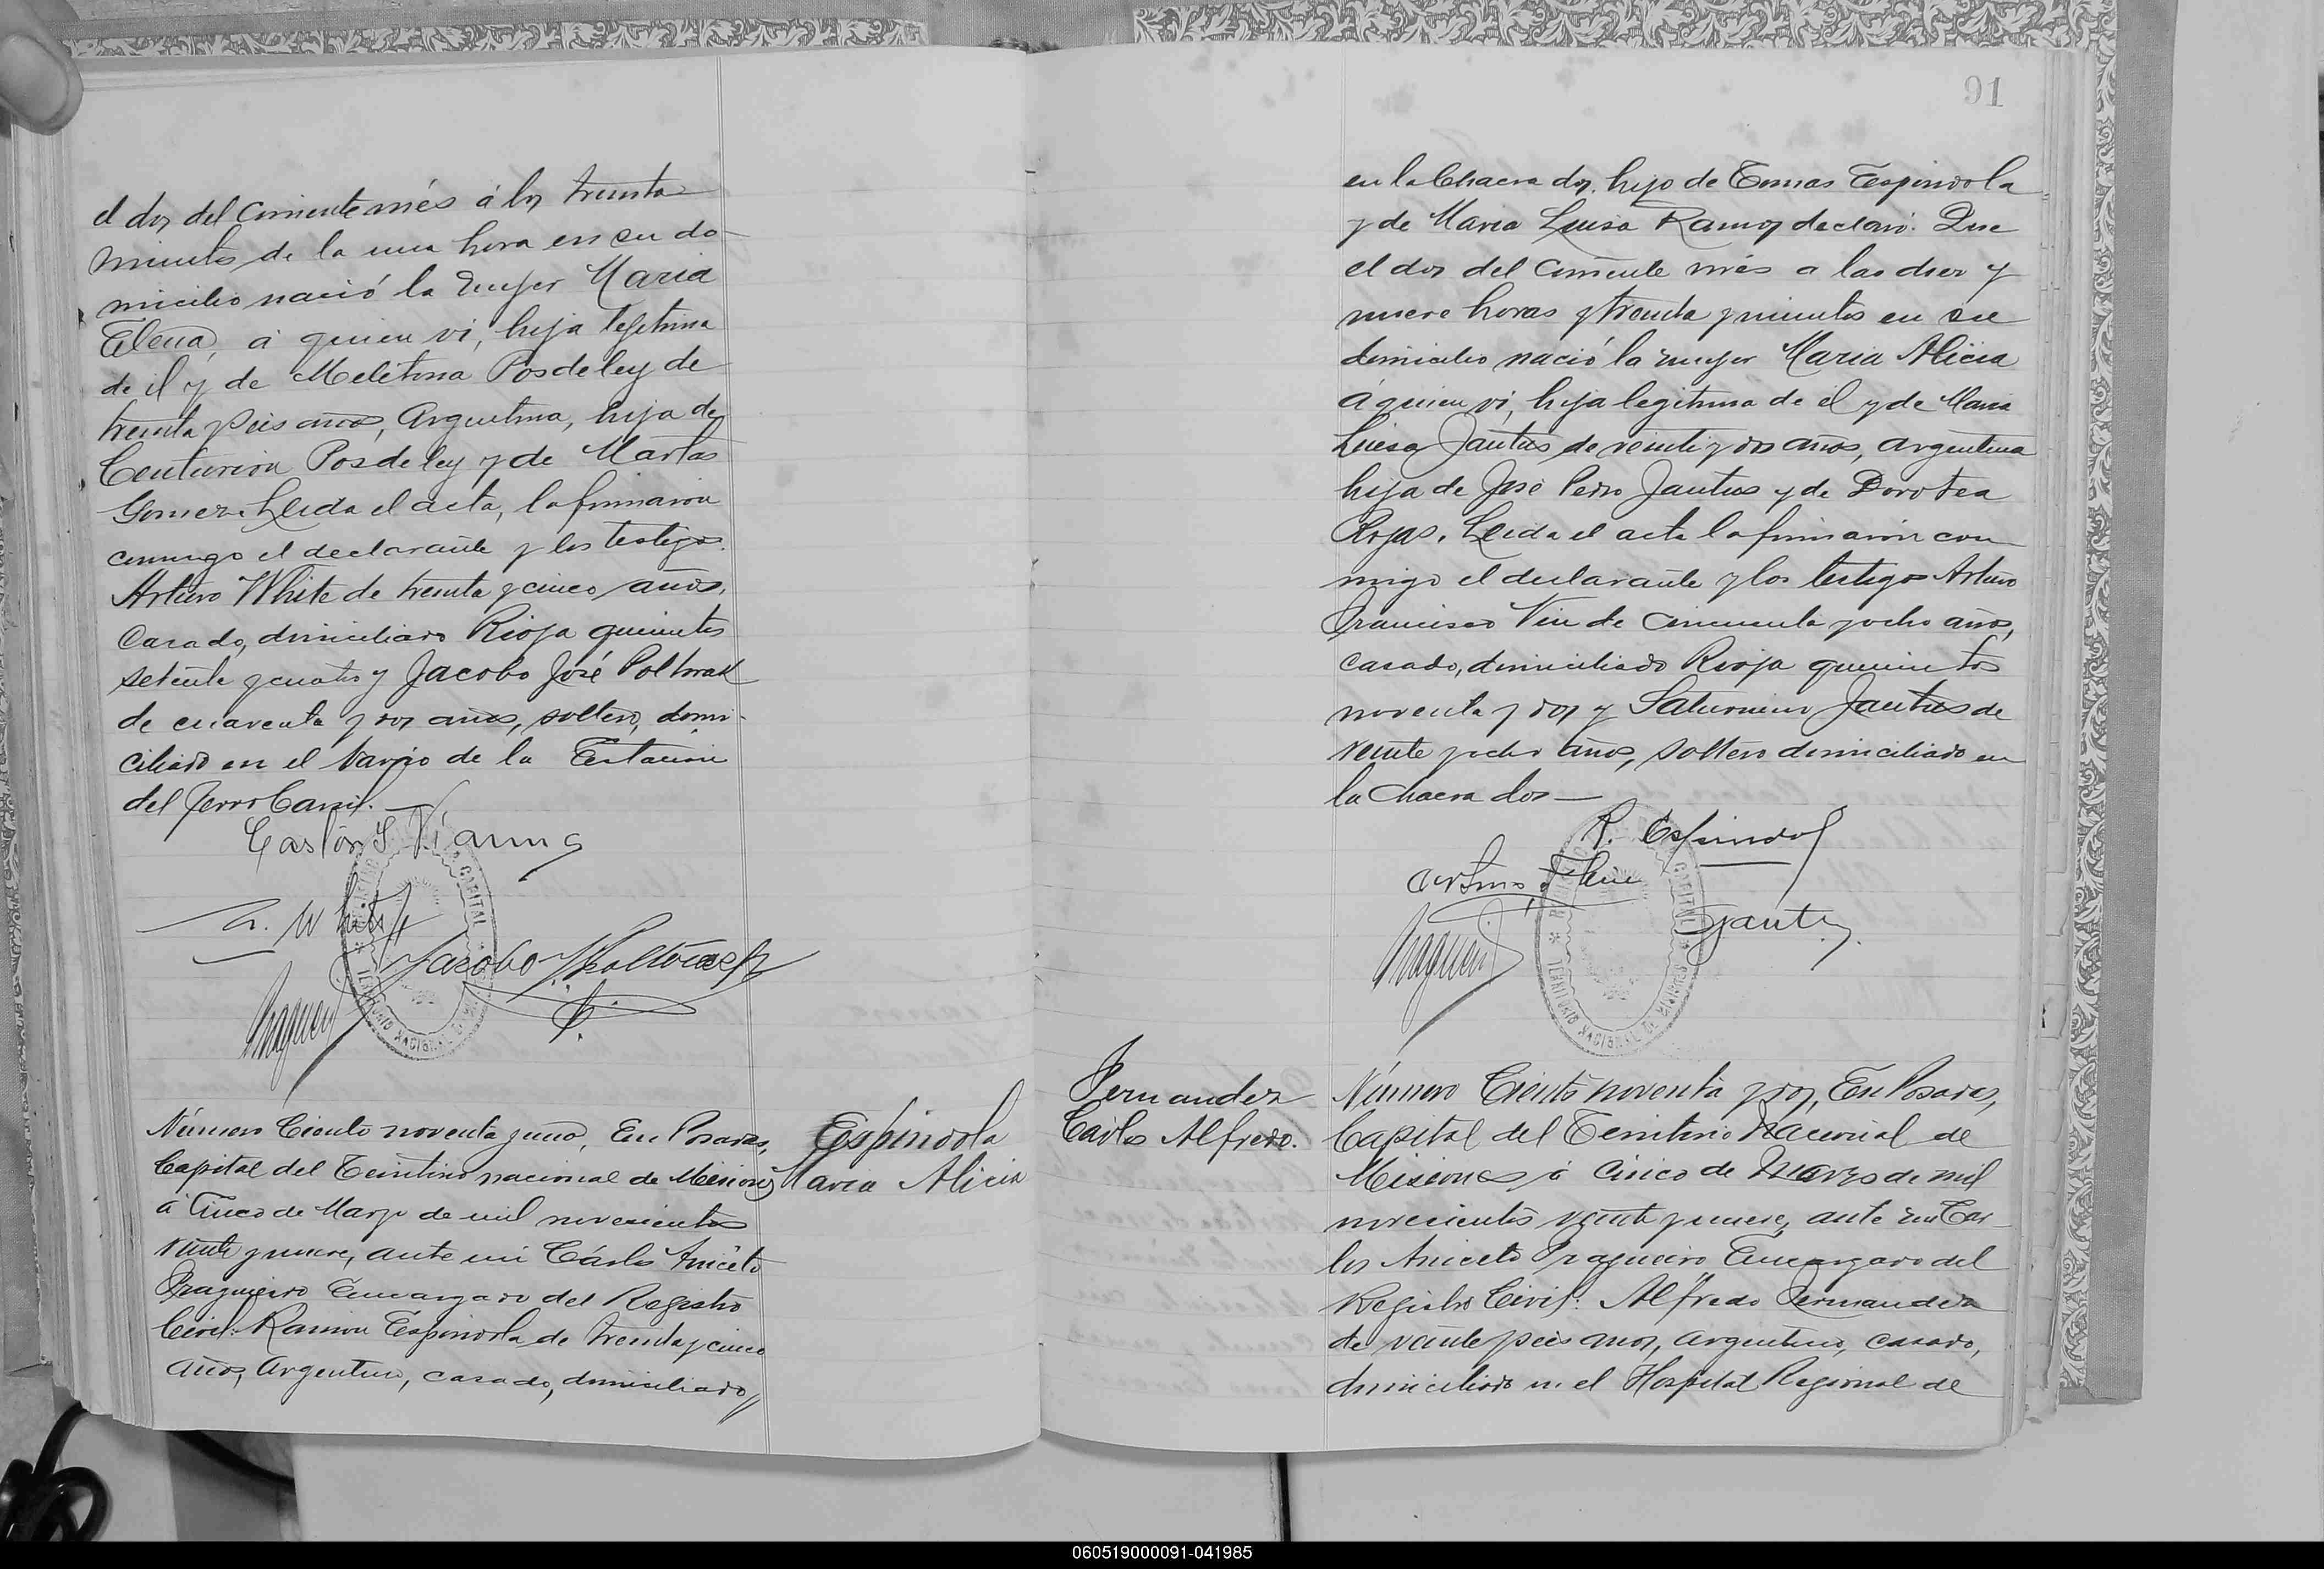 el dos del corriente més á los treinta
minutos de la una hora en su do-
micilio nació la mujer Maria
Elena, á quien vi, hija legitima
de él y de Melitona Posdeley de
treinta y seis años, Argentina, hija de
Centurion Posdeley y de Martas
Gomez. Leida el acta, la firmaron
conmigo el declarante y los testigos
Arturo White de treinta y cinco años,
Casado, domiciliado Rioja quinientos
setenta y cuatro y Jacobo José Poltorak
de cuarenta y dos años, soltero, domi-
ciliado en el barrio de la Estación
del FerroCarril.
Gastón S.
A. White
Jacobo J. Poltorak
Número Ciento noventa y uno, En Posadas,
Capital del Territorio nacional de Misiones
á Cinco de Marzo de mil novecientos
veinte y nueve, ante mi Cárlos Aniceto
Pragueiro Encargado del Registro
Civil: Ramon Espindola de treinta y cinco
años, Argentino, casado, domiciliado
Espindola
Maria Alicia
91
en la Chacra dos, hijo de Tomas Espindola
y de Maria Luisa Ramos declaró: Que
el dos del corriente més a las diez y
nueve horas y treinta minutos en su
domicilio nació la mujer Maria Alicia
á quien vi, hija legitima de él y de Maria
Luisa Jantus de veinte y dos años, argentina
hija de José Pedro Jantus y de Dorotea
Rojas. Leida el acta la firmaron con-
migo el declarante y los testigos Arturo
Francisco Vin de cincuenta y ocho años,
casado, domiciliado Rioja quinientos
noventa y dos y Saturnino Jantus de
veinte y ocho años, soltero domiciliado en
la Chacra dos—
R. Espindol
Arturo F.
S Jantus
Fernandez
Carlos Alfredo.
Número Ciento noventa y dos, En Posadas,
Capital del Territorio Nacional de
Misiones á cinco de Marzo de mil
novecientos veinte y nueve, ante mi Car-
los Aniceto Pragueiro Encargado del
Registro Civil: Alfredo Fernandez
de veinte y seis años, argentino, casado,
domiciliado en el Hospital Regional de
060519000091-041985